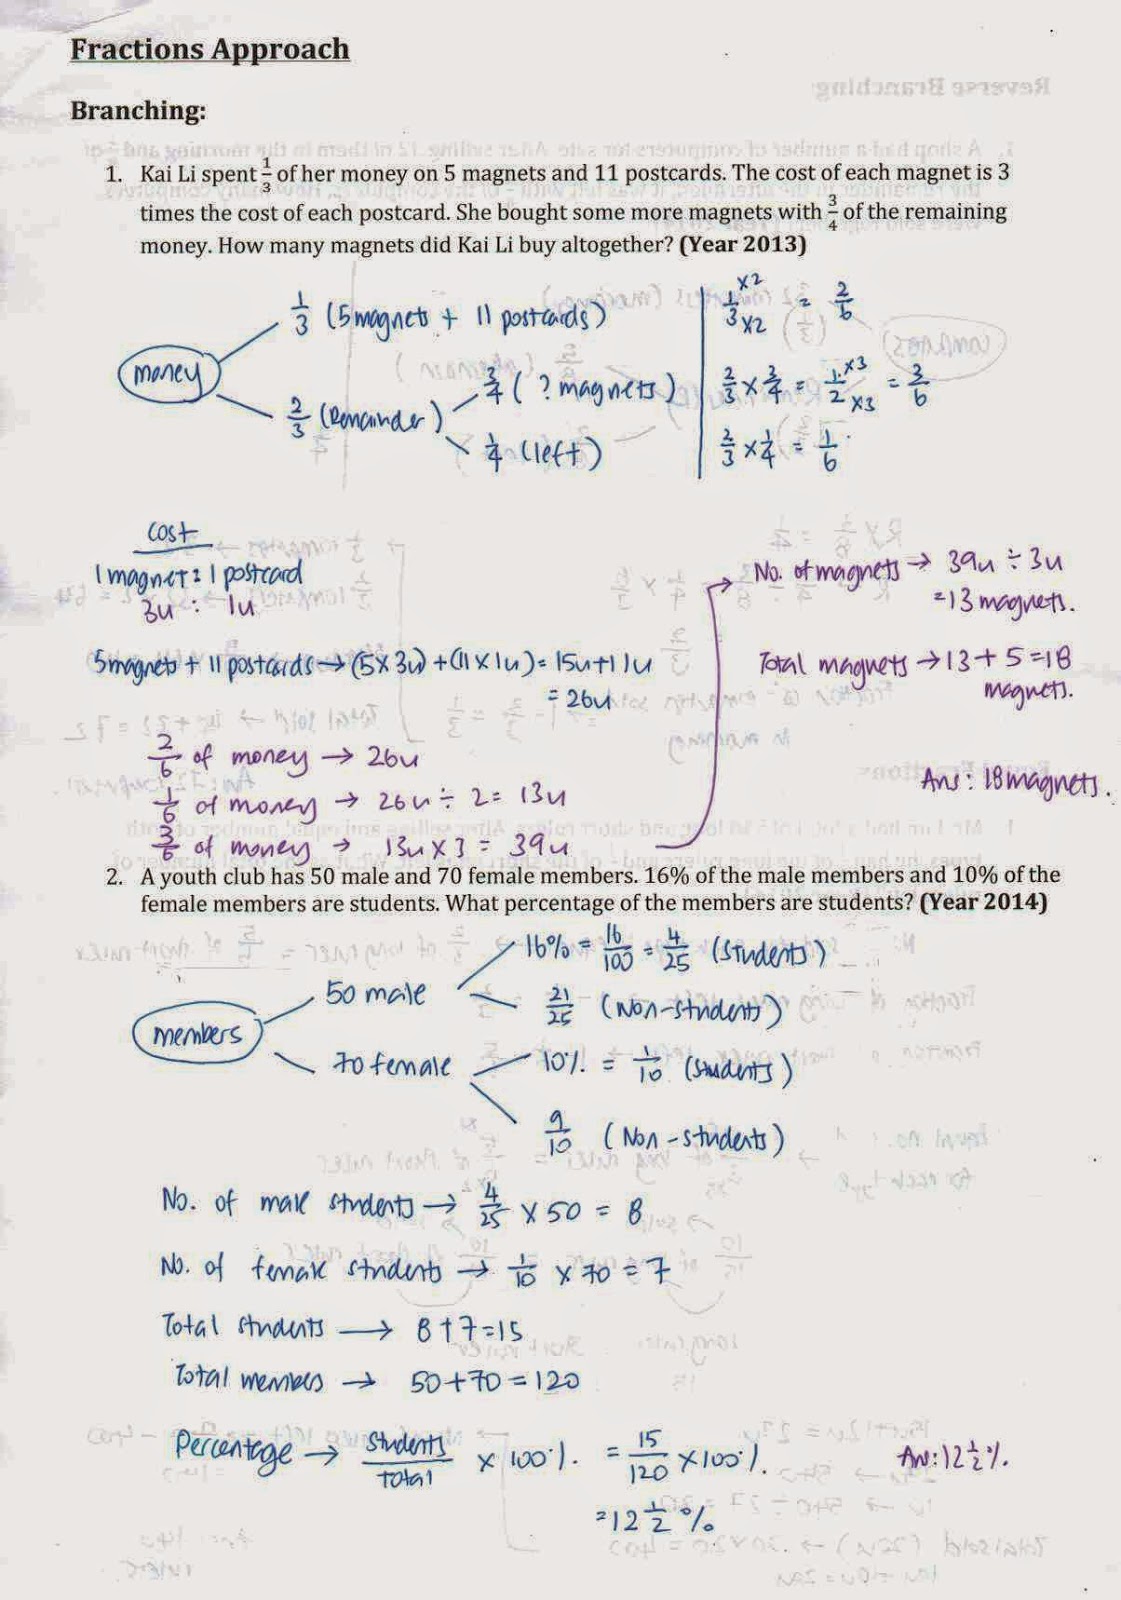 Fractions Approach
Branching:
1. Kai Li spent 1/3 of her money on 5 magnets and 11 postcards. The cost of each magnet is 3
times the cost of each postcard. She bought some more magnets with 3/4 of the remaining
money. How many magnets did Kai Li buy altogether? (Year 2013)
money
1/3 (5 magnets + 11 postcards)
2/3 (Remainder)
3/4 ( ? magnets)
1/4 (left)
1/3 ×2 ×2 = 2/6
2/3 × 3/4 = 1/2 ×3 ×3 = 3/6
2/3 × 1/4 = 1/6
cost
1 magnet : 1 postcard
3u : 1u
5 magnets + 11 postcards → (5 × 3u) + (11 × 1u) = 15u + 11u
= 26u
2/6 of money → 26u
1/6 of money → 26u ÷ 2 = 13u
3/6 of money → 13u × 3 = 39u
No. of magnets → 39u ÷ 3u
= 13 magnets.
Total magnets → 13 + 5 = 18
magnets.
Ans : 18 magnets.
2. A youth club has 50 male and 70 female members. 16% of the male members and 10% of the
female members are students. What percentage of the members are students? (Year 2014)
members
50 male
16% = 16/100 = 4/25 (students)
21/25 (Non-students)
70 female
10% = 1/10 (students)
9/10 (Non-students)
No. of male students → 4/25 × 50 = 8
No. of female students → 1/10 × 70 = 7
Total students → 8 + 7 = 15
Total members → 50 + 70 = 120
Percentage → Students/Total × 100% = 15/120 × 100%.
= 12 1/2 %
An : 12 1/2 %.